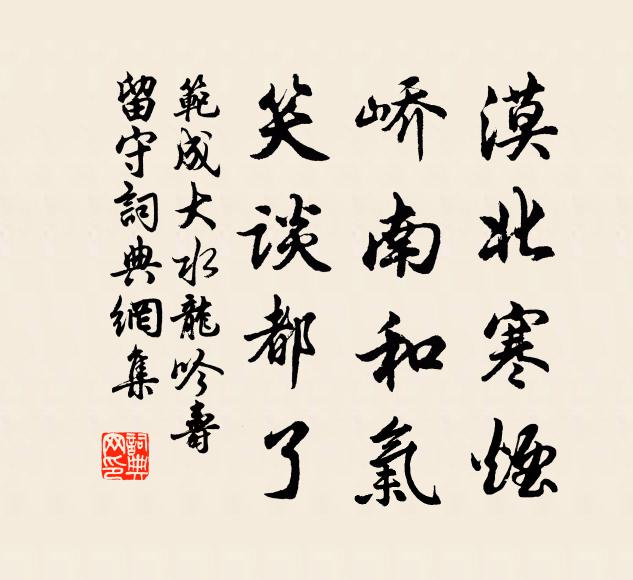 漠北寒煙
嶠南和氣
笑談都了
範成大水龍吟壽
留守詞典網集
詞典網印